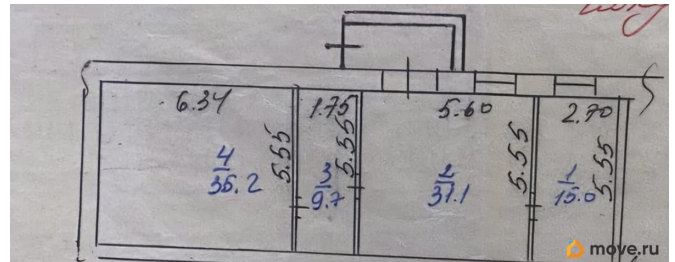 6.34
1.75
5.60
2.70
5.55
5.55
5.55
5.55
4
35.2
3
9.7
2
31.1
1
15.0
move.ru